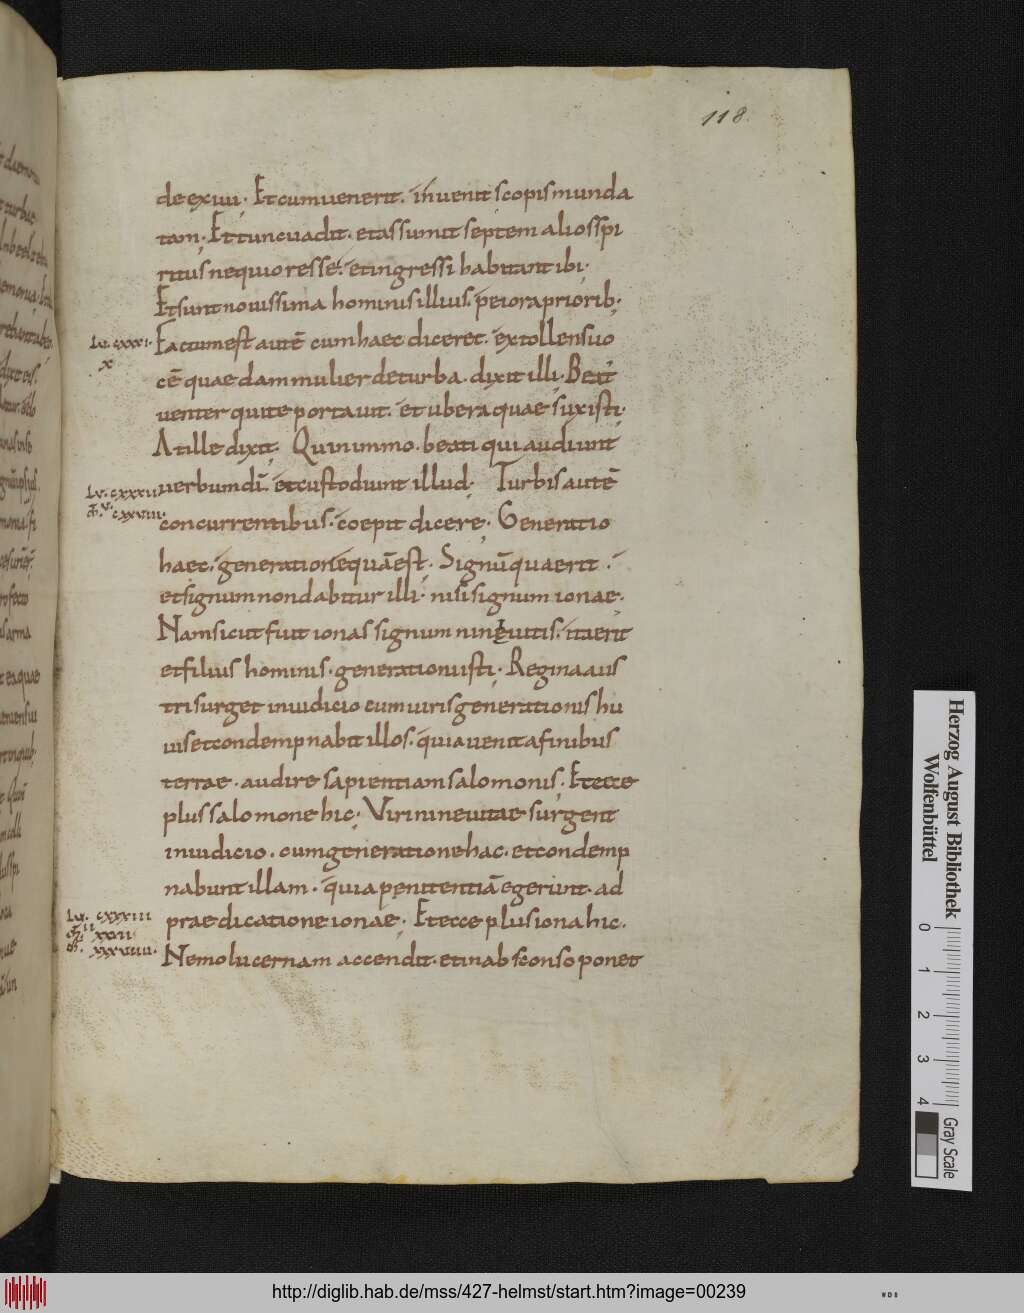 118.
de exiui. Et cum uenerit. inuenit scopis munda
tam. Et tunc uadit. et assumit septem alios spi
ritus nequiores se. et ingressi habitant ibi.
Et sunt nouissima hominis illius. peiora priorib;
Lu. cxxxi.
x
Factum est autē cum haec diceret. extollens uo
cē quaedam mulier de turba. dixit illi. Beat
uenter qui te portauit. et ubera quae suxisti.
At ille dixit. Quinimmo. beati qui audiunt
uerbum dī. et custodiunt illud. Turbis autē
concurrentibus. coepit dicere. Generatio
haec. generatio nequā est. Signū quaerit.
et signum non dabitur illi. nisi signum ionae.
Nam sicut fuit ionas signum nineuitis. ita erit
et filius hominis. generationi isti. Regina aus
tri surget in iudicio cum uiris generationis hu
ius et condempnabit illos. quia uenit a finibus
terrae. audire sapientiam salomonis. Et ecce
plus salomone hic. Viri nineuitae surgent
in iudicio. cum generatione hac. et condemp
nabunt illam. quia penitentiā egerunt. ad
praedicatione ionae. Et ecce plus iona hic.
Lu. cxxxiii
Nemo lucernam accendit. et in absconso ponet
Herzog August Bibliothek
Wolfenbüttel
0 1 2 3 4
Gray Scale
http://diglib.hab.de/mss/427-helmst/start.htm?image=00239